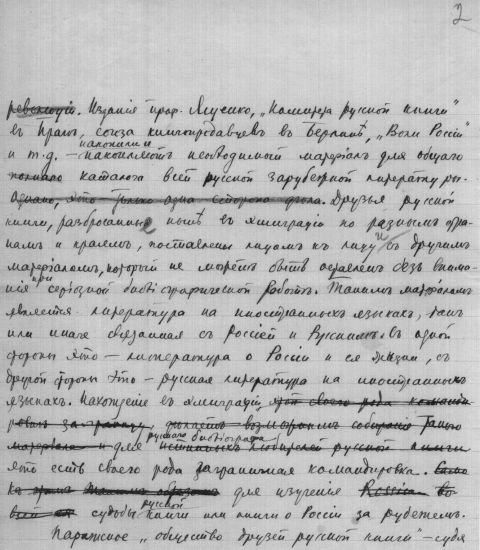 2
революціи. Изданія проф. Ященко, „Комитета русской книги"
въ Прагѣ, союза книгопродавцевъ въ Берлинѣ, „Воли Россіи"
и т.д. – накопили
накопляютъ необходимый матеріалъ для общаго
полнаго каталога всей русской зарубежной литературы.
Однако, это только одна сторона дѣла. Друзья русской
книги, разбросанные нынѣ въ эмиграціи по разнымъ стра-
намъ и краямъ, поставлены лицомъ къ лицу и съ другимъ
матеріаломъ, который не можетъ быть оставленъ безъ внима-
нія при серіозной библіографической работѣ. Такимъ матеріаломъ
является литература на иностранныхъ языкахъ, такъ
или иначе связанная съ Россіей и Русскими. Съ одной
стороны это – литература о Россіи и ея жизни, съ
другой стороны это – русская литература на иностранныхъ
языкахъ. Нахожденіе въ эмиграціи, этой своего рода команди-
ровкѣ заграницу, дѣлаетъ возможнымъ собираніе такого
матеріала и для русскаго библіографа
истинныхъ любителей русской книги
это есть своего рода заграничная командировка.
для изученія
судьбы русской книги или книги о Россіи за рубежемъ.
Парижское „общество друзей русской книги" – судя